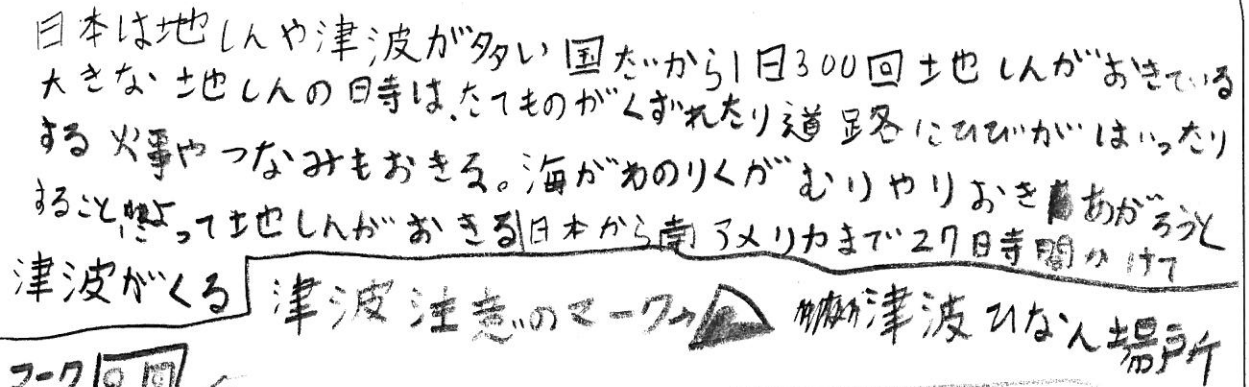 日本は地しんや津波が多い国だから1日300回地しんがおきている
大きな地しんの日寺は、たてものがくずれたり道路にひびがはいったり
する火事やつなみもおきる。海がわのりくがむりやりおきあがろうと
することによって地しんがおきる日本から南アメリカまで27時間かけて
津波がくる
津波注意のマーク→
津波ひなん場所
マーク